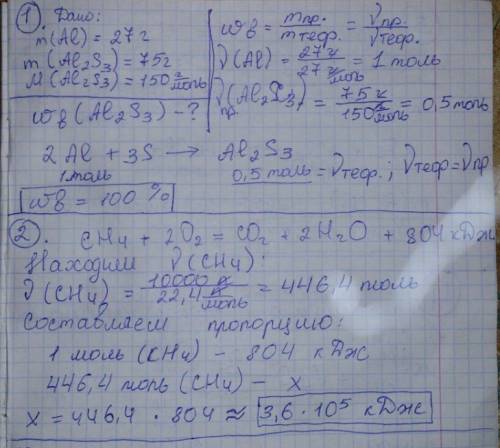 1. Дано:
m(Al) = 27г
m(Al2S3) = 75г
M(Al2S3) = 150 г/моль
ωв(Al2S3) - ?
ωв = mпр./mтеор. = νпр./νтеор.
ν(Al) = 27г / 27 г/моль = 1 моль
νпр.(Al2S3) = 75г / 150 г/моль = 0,5 моль
2Al + 3S → Al2S3
1моль 0,5 моль = νтеор. ; νтеор = νпр
ωв = 100 %
2. CH4 + 2O2 = CO2 + 2H2O + 804 кДж
Находим ν(CH4):
ν(CH4) = 10000 л / 22,4 л/моль = 446,4 моль
Составляем пропорцию:
1 моль (CH4) - 804 кДж
446,4 моль (CH4) - x
x = 446,4 · 804 ≈ 3,6 · 10⁵ кДж